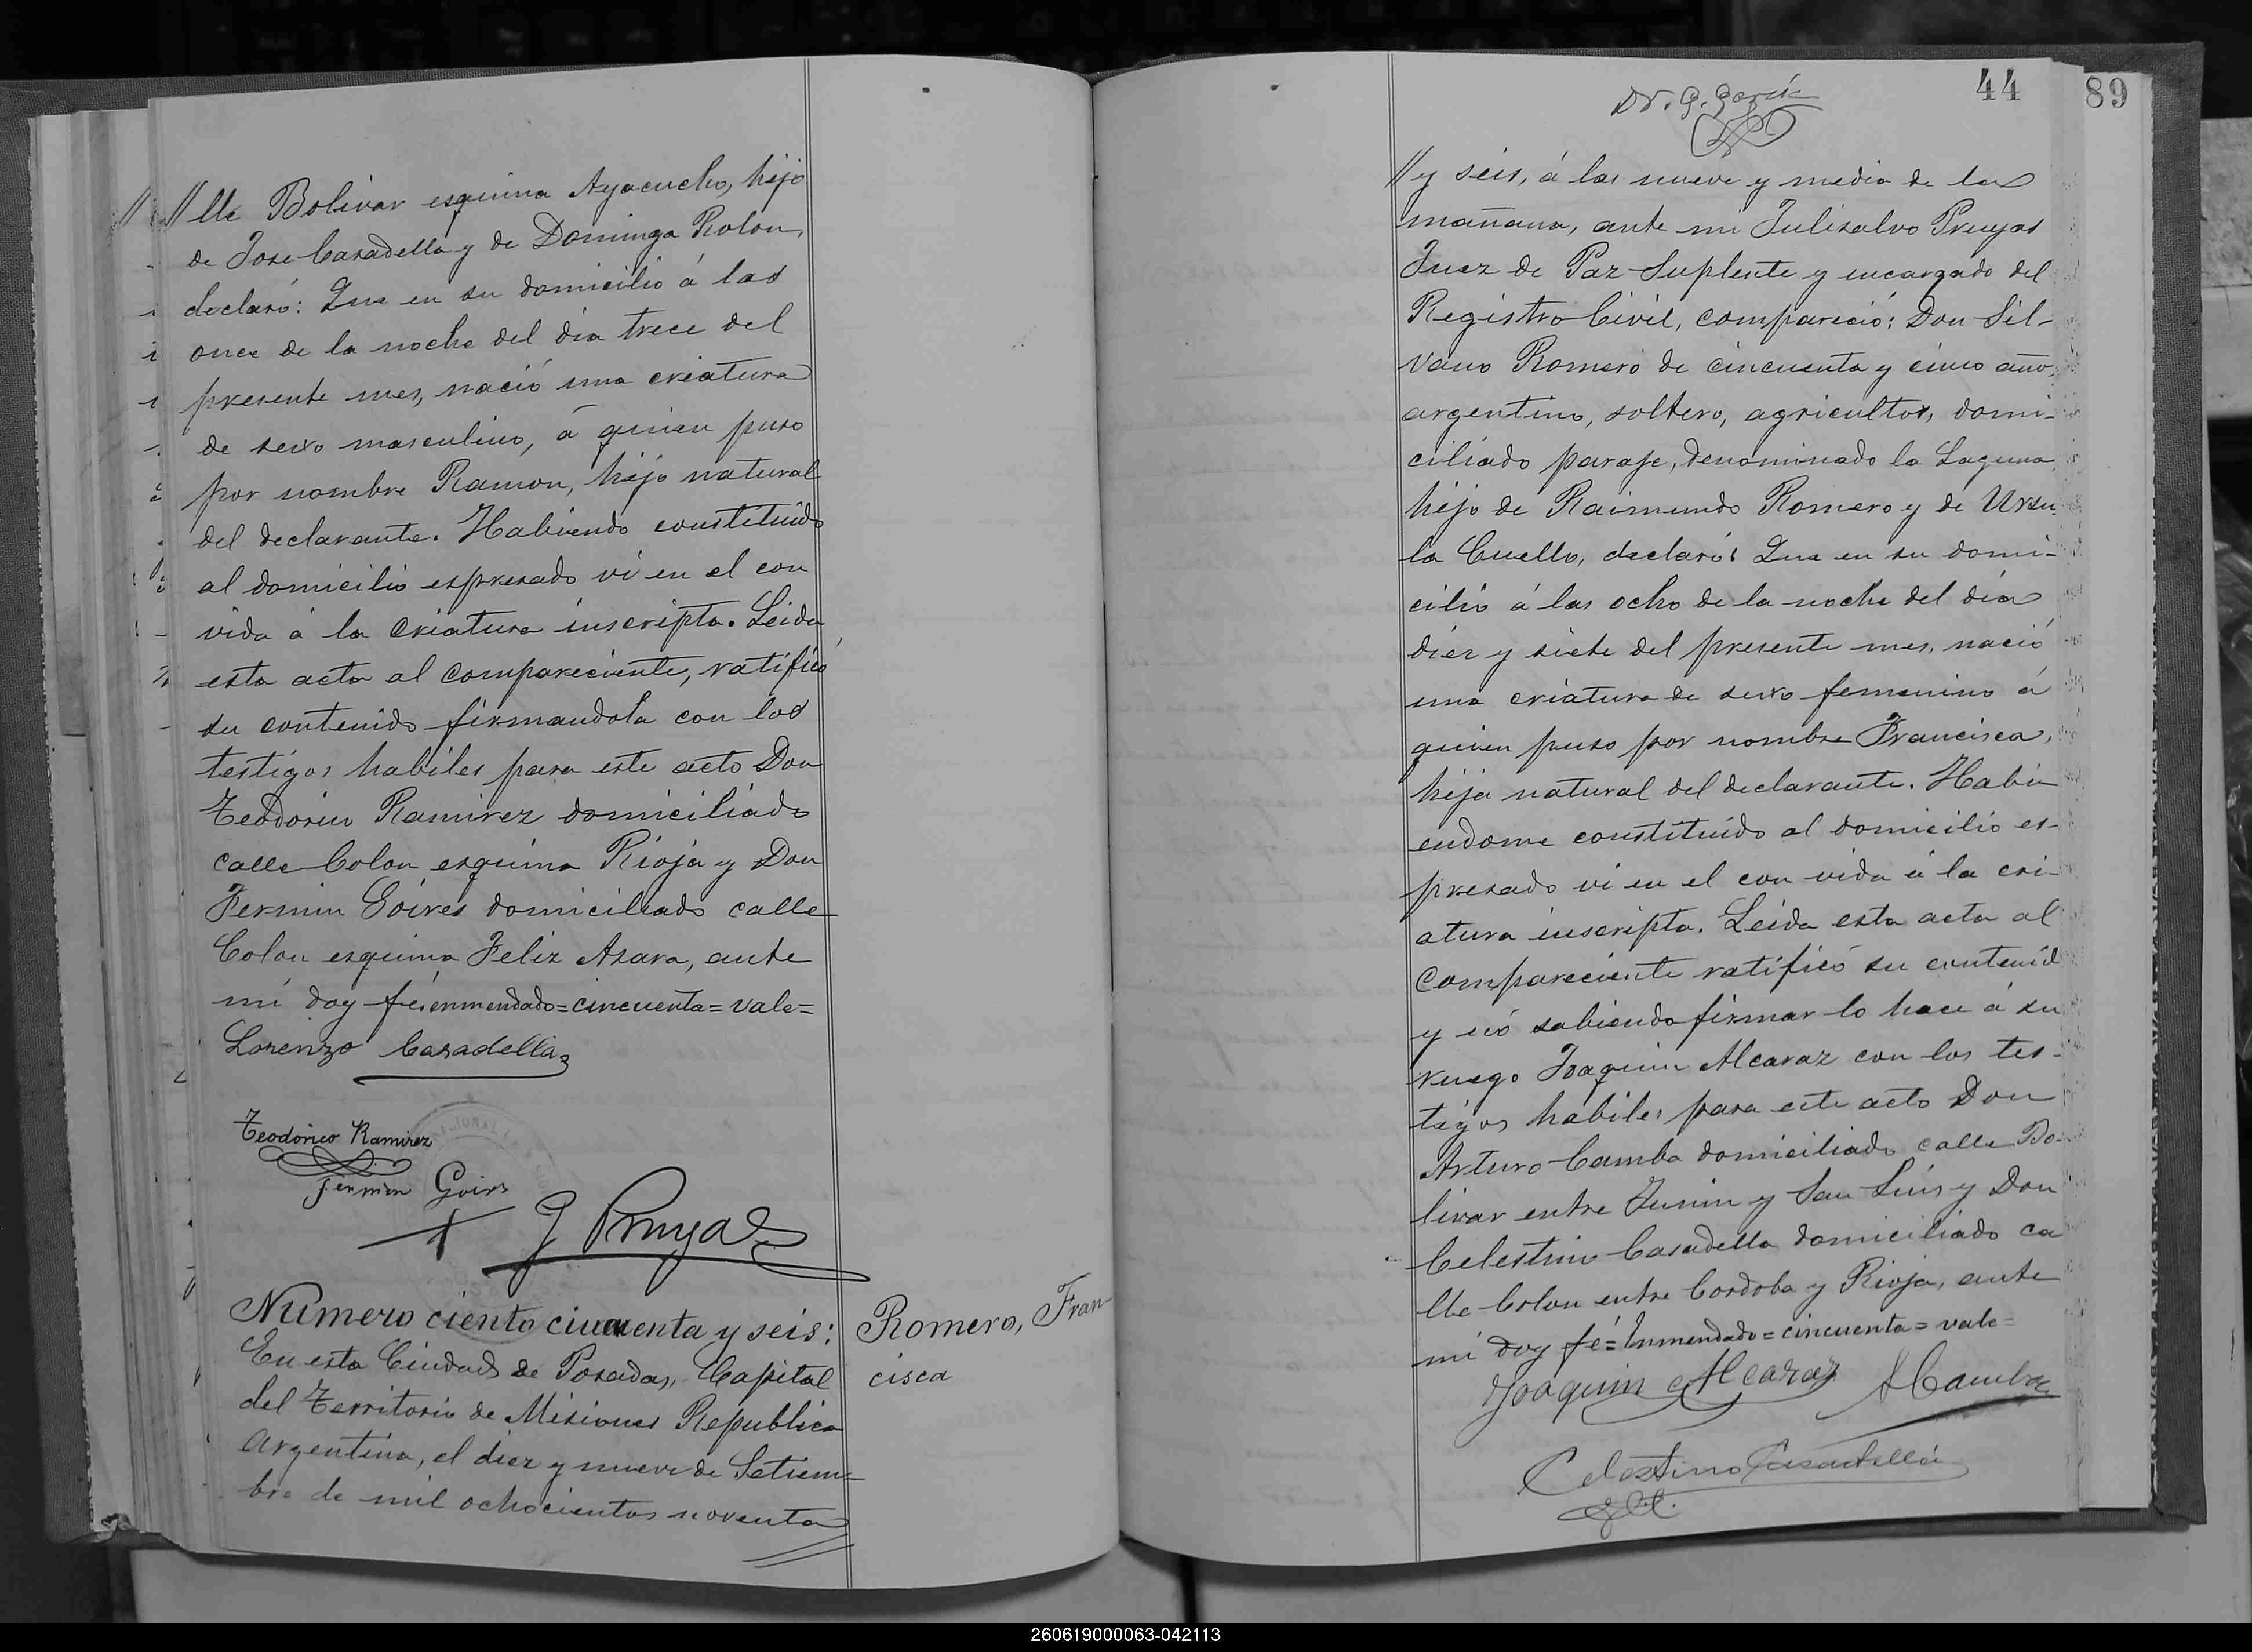 //lle Bolivar esquina Ayacucho, hijo
de Jose Casadella y de Dominga Rolon,
declaró: Que en su domicilio á las
once de la noche del dia trece del
presente mes, nació una criatura
de sexo masculino, á quien puso
por nombre Ramon, hijo natural
del declarante. Habiendo constituido
al domicilio espresado vi en el con
vida á la criatura inscripta. Leida
esta acta al compareciente, ratificó
su contenido firmandola con los
testigos habiles para este acto Don
Teodorico Ramirez domiciliado
calle Colon esquina Rioja y Don
Fermin Goires domiciliado calle
Colon esquina Feliz Azara, ante
mi doy fé; enmendado=cincuenta=vale=
Lorenzo Casadella
Teodorico Ramirez
Fermin Goires
J Pruyas
Numero ciento cincuenta y seis:
En esta Ciudad de Posadas, Capital
del Territorio de Misiones Republica
Argentina, el diez y nueve de Setiem-
bre de mil ochocientos noventa
Romero, Fran-
cisca
44
89
Dr. G. García
//y seis, á las nueve y media de la
mañana, ante mi Julisalvo Pruyas
Juez de Paz Suplente y encargado del
Registro Civil, compareció: Don Sil-
vano Romero de cincuenta y cinco año
argentino, soltero, agricultor, domi-
ciliado paraje, denominado la Laguna
hijo de Raimundo Romero y de Ursu
la Cuello, declaró: Que en su domi-
cilio á las ocho de la noche del dia
diez y siete del presente mes, nació
una criatura de sexo femenino á
quien puso por nombre Francisca,
hija natural del declarante. Habi
endome constituido al domicilio es-
presado vi en el con vida á la cri-
atura inscripta. Leida esta acta al
compareciente ratificó su contenid
y nó sabiendo firmar lo hace á su
ruego Joaquin Alcaraz con los tes-
tigos habiles para este acto Don
Arturo Camba domiciliado calle Bo-
livar entre Junin y San Luis y Don
Celestino Casadella domiciliado ca
lle Colon entre Cordoba y Rioja, ante
mi doy fé=Enmendado=cincuenta=vale=
Joaquin Alcaraz ACamba
Celestino Casadella
260619000063-042113